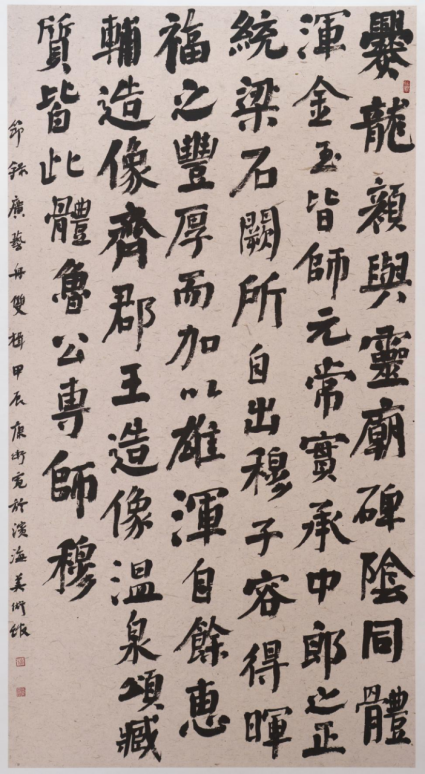 爨龍顏與靈廟碑陰同體
渾金玉皆師元常實承中郎之正
統梁石闕所自出穆子容得暉
福之豐厚而加以雄渾自餘惠
輔造像齊郡王造像溫泉頌臧
質皆此體魯公專師穆
節錄廣藝舟雙楫甲辰康術寬於濱海美術館